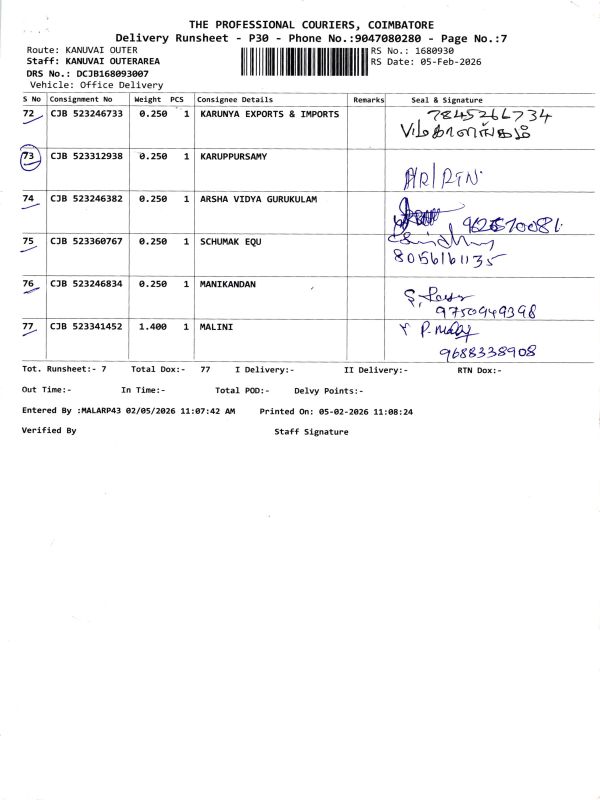 THE PROFESSIONAL COURIERS, COIMBATORE
Delivery Runsheet - P30 - Phone No.:9047080280 - Page No.:7
Route: KANUVAI OUTER
RS No.: 1680930
Staff: KANUVAI OUTERAREA
RS Date: 05-Feb-2026
DRS No.: DCJB168093007
Vehicle: Office Delivery
S No Consignment No Weight PCS Consignee Details Remarks Seal & Signature
72 CJB 523246733 0.250 1 KARUNYA EXPORTS & IMPORTS 7845266734
73 CJB 523312938 0.250 1 KARUPPURSAMY
74 CJB 523246382 0.250 1 ARSHA VIDYA GURUKULAM
75 CJB 523360767 0.250 1 SCHUMAK EQU
8056161135
76 CJB 523246834 0.250 1 MANIKANDAN
9750949398
77 CJB 523341452 1.400 1 MALINI
9688338908
Tot. Runsheet:- 7 Total Dox:- 77 I Delivery:- II Delivery:- RTN Dox:-
Out Time:- In Time:- Total POD:- Delvy Points:-
Entered By :MALARP43 02/05/2026 11:07:42 AM Printed On: 05-02-2026 11:08:24
Verified By Staff Signature